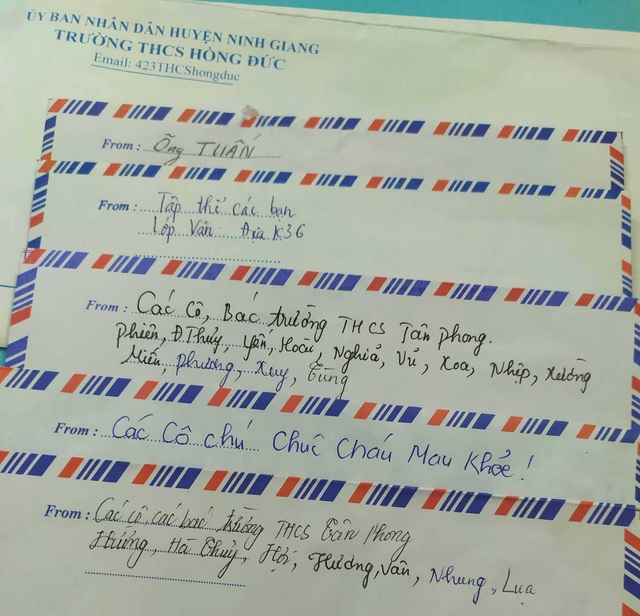 ỦY BAN NHÂN DÂN HUYỆN NINH GIANG
TRƯỜNG THCS HỒNG ĐỨC
Email: 423THCShongduc
From: Ông TUẤN
From: Tập thể các bạn
Lớp Văn - Địa K36
From: Các Cô, Bác trường THCS Tân Phong.
Phiên, Đ.Thủy, Yến, Hoài, Nghiã, Vũ, Xoa, Nhịp, Xường
Miến, Phương, Xuy, Tùng
From: Các Cô chú Chúc Cháu Mau Khỏe!
From: Các cô, các bác trường THCS Tân Phong
Hường, Hà Thủy, Hợi, Hương, Vân, Nhung, Lụa